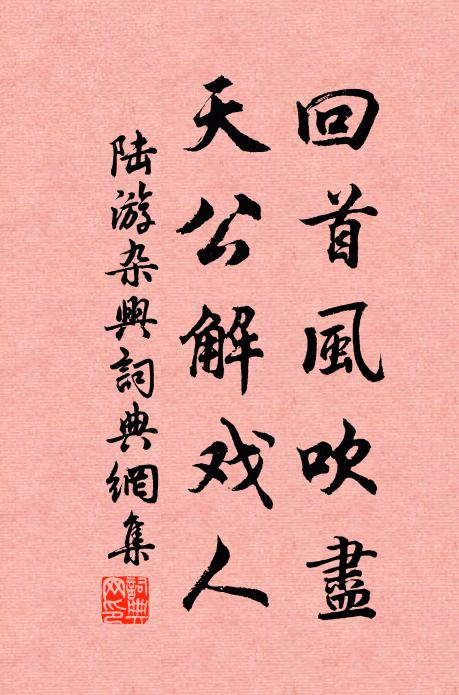 回首風吹盡
天公解戏人
陆游杂興詞典網集
詞典網印